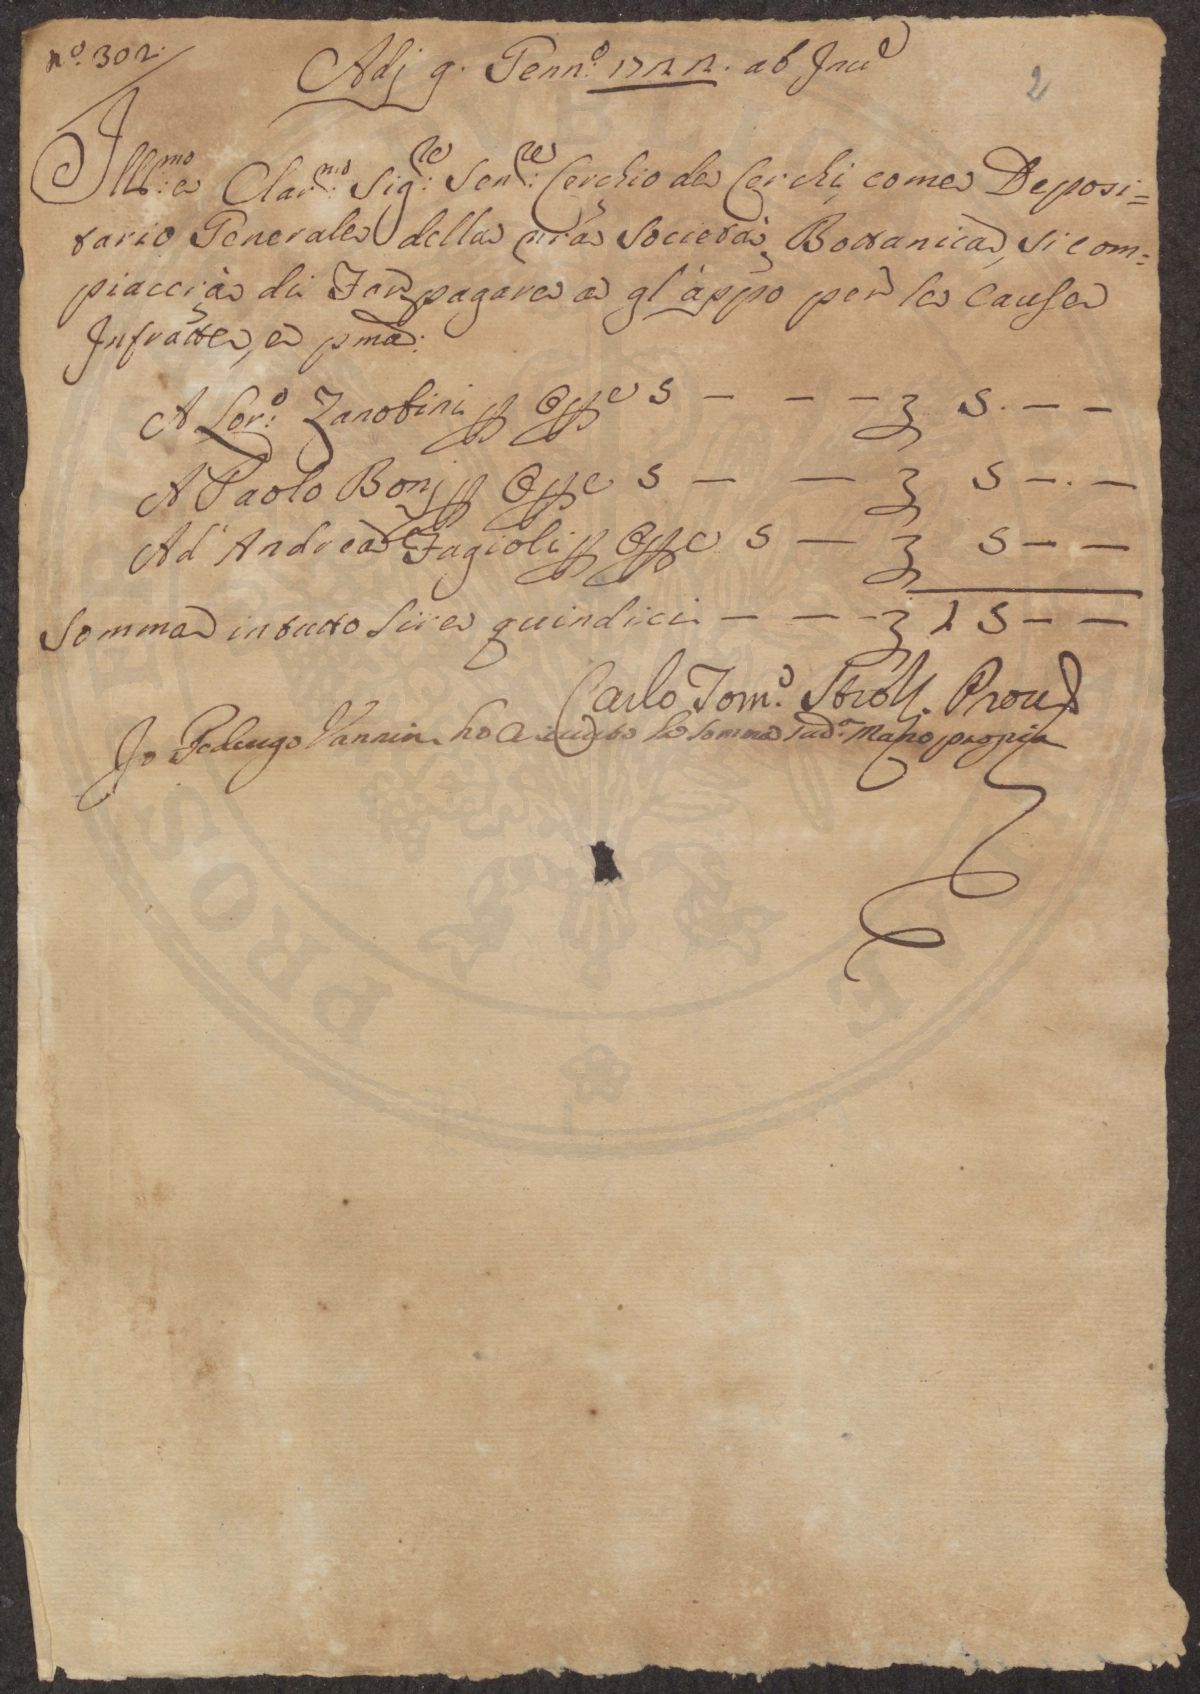 nº. 302.
Adj 9. Gennº. 1722. ab Incⁿᵉ
2
Illᵐᵒ: e Clarᵐᵒ: Sigʳᵉ: Senʳᵉ: Cerchio de Cerchi, come Deposi=
tario Generale della nrã Società Bottanica, si com=
piaccrà di Far pagare a gl'appo per le Cause
Infratte, e pma:
A Lorº: Zanobini p Opre 5 — — — 3 5. — —
A Paolo Bonj p Opre 5 — — 3 5 — . —
Ad' Andrea Fagioli p Opre 5 — 3 5 — —
Somma in tutto Lire quindici — — — 3 15 — —
Carlo Tomº. Strozi. Provʳ
Io Federigo Vannini ho riceuto la somma sudᵃ Mano propria